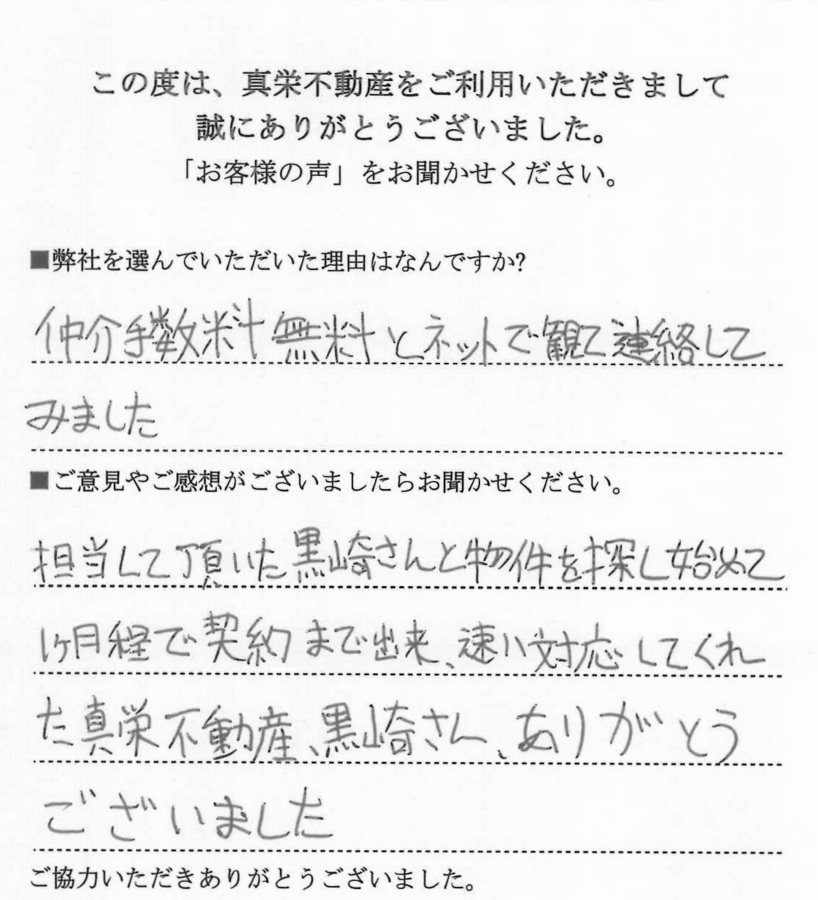 この度は、真栄不動産をご利用いただきまして
誠にありがとうございました。
「お客様の声」をお聞かせください。
■弊社を選んでいただいた理由はなんですか?
仲介手数料無料とネットで観て連絡して
みました
■ご意見やご感想がございましたらお聞かせください。
担当して頂いた黒崎さんと物件を探し始めて
1ヶ月経で契約まで出来、速い対応してくれ
た真栄不動産、黒崎さん、ありがとう
ございました
ご協力いただきありがとうございました。